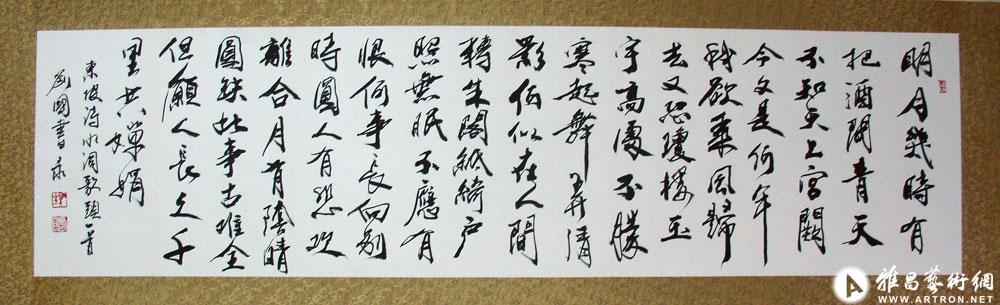 明月幾時有
把酒問青天
不知天上宮闕
今夕是何年
我欲乘風歸
去又恐瓊樓玉
宇高處不勝
寒起舞弄清
影何似在人間
轉朱閣低綺戶
照無眠不應有
恨何事長向別
時圓人有悲欢
離合月有陰晴
圓缺此事古难全
但願人長久千
里共嬋娟
東坡詩水調歌頭一首
劉國書
雅昌藝術網
WWW.ARTRON.NET